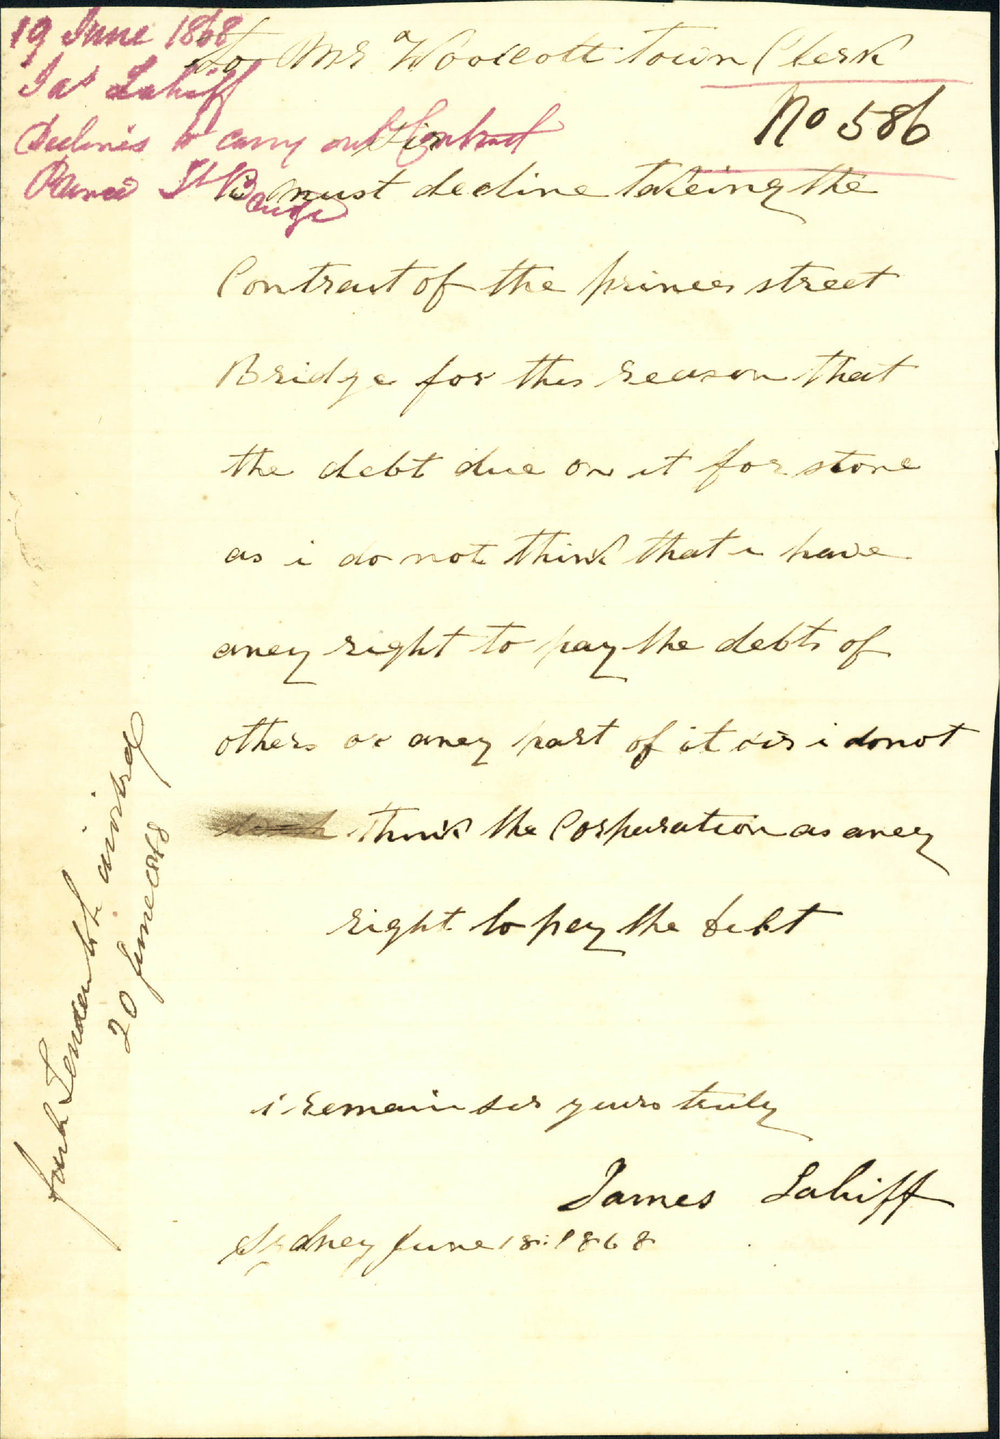 19 June 1868
Jas Lahiff
Declines to carry out Contract
Princes St Bridge
To Mr Woolcott Town Clerk
No 586
Sir
i must decline takeing the
Contract of the princes street
Bridge for this reason that
the debt due on it for stone
as i do not think that i have
aney right to pay the debts of
others or aney part of it sir i do not
think the Corparation as aney
right to pay the debt
i remain sir yours truly
James Lahiff
Sydney June 18 1868
fresh Tenders to be invited
20 June 1868